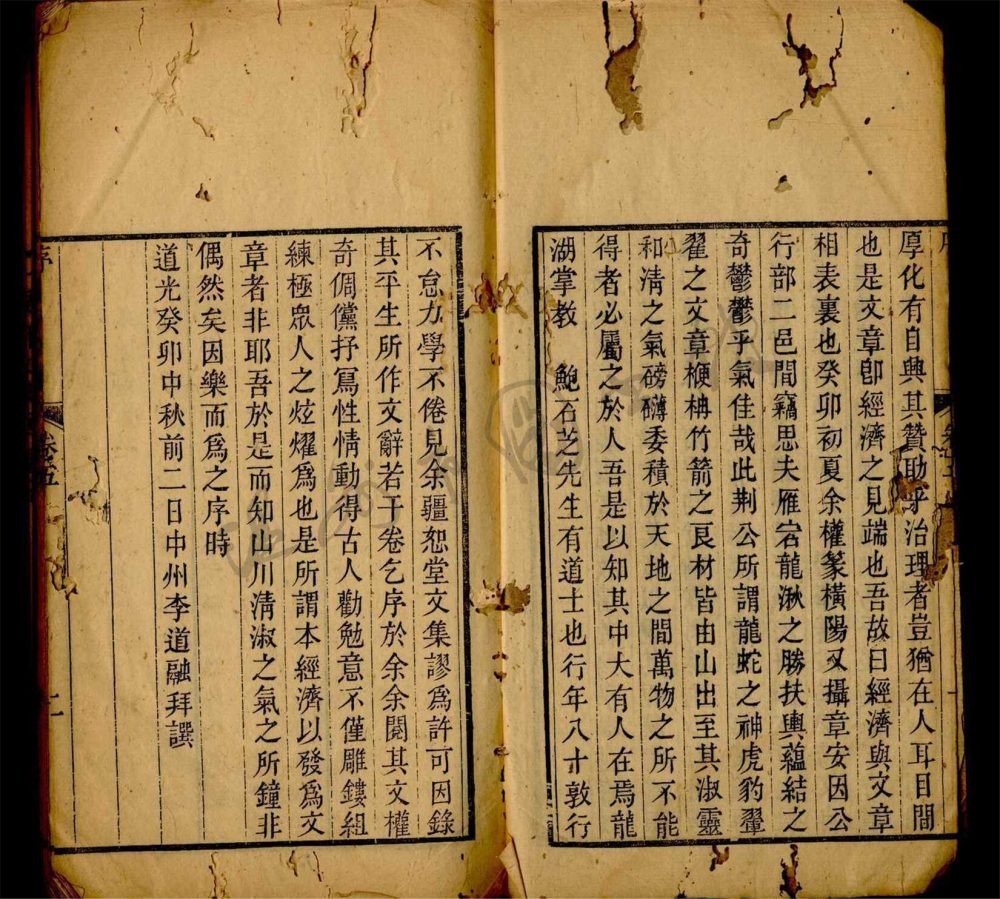 厚化有自與其贊助乎治理者豈猶在人耳目間
也是文章卽經濟之見端也吾故曰經濟與文章
相表裏也癸卯初夏余權篆橫陽又攝章安因公
行部二邑間竊思夫雁宕龍湫之勝扶輿蘊結之
奇鬱鬱乎氣佳哉此荆公所謂龍蛇之神虎豹翬
翟之文章楩柟竹箭之良材皆由山出至其淑靈
和淸之氣磅礴委積於天地之間萬物之所不能
得者必屬之於人吾是以知其中大有人在焉龍
湖掌教 鮑石芝先生有道士也行年八十敦行
不怠力學不倦見余疆恕堂文集謬爲許可因錄
其平生所作文辭若干卷乞序於余余閱其文權
奇倜儻抒寫性情動得古人勸勉意不僅雕鏤組
練極眾人之炫燿爲也是所謂本經濟以發爲文
章者非耶吾於是而知山川淸淑之氣之所鐘非
偶然矣因樂而爲之序時
道光癸卯中秋前二日中州李道融拜譔
序
卷五
二